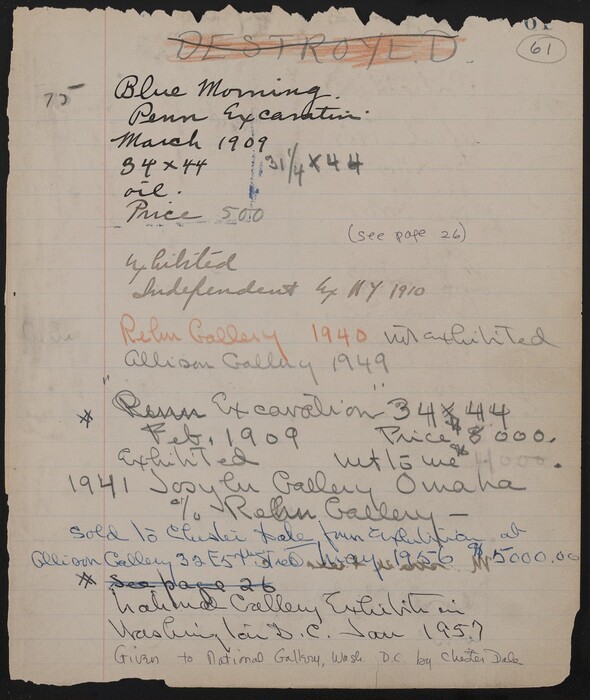 DESTROYED
61
75
Blue Morning.
Penn Excavation.
March 1909
34 x 44 31 1/4 x 44
oil.
Price 500
(see page 26)
Exhibited
Independent Ex NY 1910
Rehn Gallery 1940 not exhibited
Allison Gallery 1949
* "Penn Excavation" 34 x 44
Feb. 1909 Price $8000.
Exhibited net to me $4000.
1941 Joslyn Gallery Omaha
% Rehn Gallery —
Sold to Chester Dale from Exhibition at
Allison Gallery 32 E 57th St May 1956 $5000.00
* See page 26
National Gallery Exhibition
Washington D.C. Jan 1957
Given to National Gallery, Wash. D.C. by Chester Dale